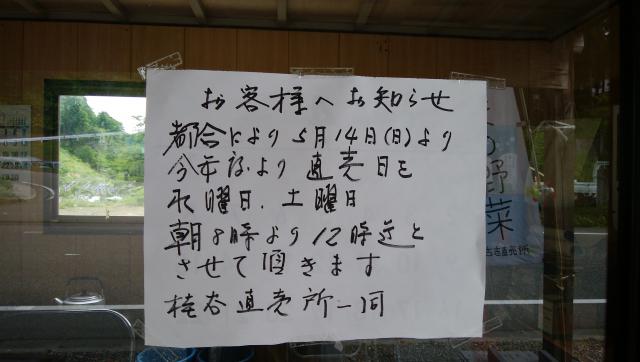 お客様へお知らせ
都合により5月14日(日)より
今年度より直売日を
水曜日、土曜日
朝8時より12時迄と
させて頂きます
桂谷直売所一同
野菜
直売所